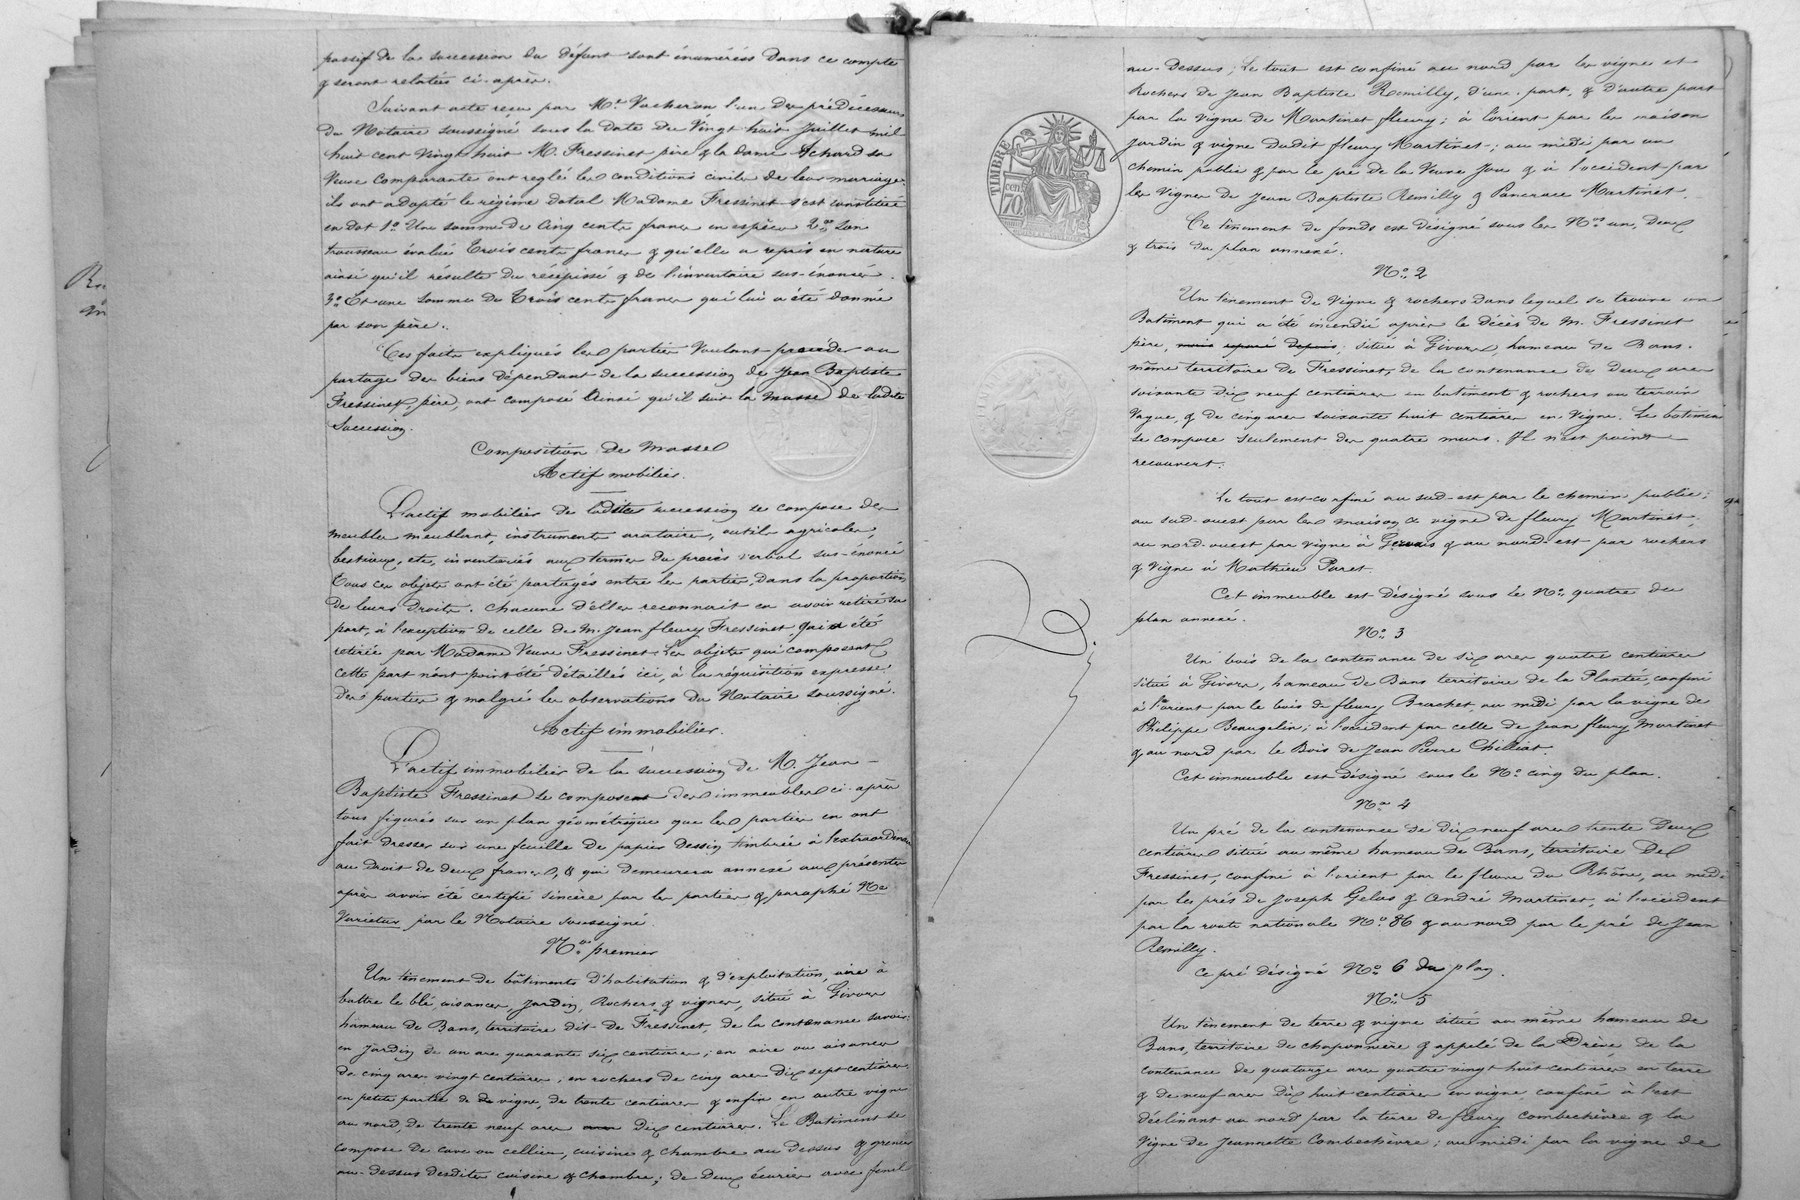 passif de la succession du défunt sont énumérés dans ce compte
& seront relatés ci-après.
Suivant acte reçu par Mᵉ Vacheron l'un des prédécesseurs
du Notaire soussigné sous la date du Vingt huit Juillet mil
huit cent vingt huit M. Fressinet père & la dame Achard sa
Veuve comparante ont reglé les conditions civiles de leur mariage.
ils ont adopté le régime dotal Madame Fressinet s'est constituée
en dot 1° Une somme de Cinq cents francs en espèces 2° Son
trousseau évalué Trois cents francs & qu'elle a repris en nature
ainsi qu'il résulte du récépissé & de l'inventaire sus-énoncés.
3° Et une somme de Trois cents francs qui lui a été donnée
par son père.
Ces faits expliqués les parties Voulant procéder au
partage des biens dépendant de la succession de Jean Baptiste
Fressinet, père, ont composé Ainsi qu'il suit la masse de ladite
Succession.
Composition de Masse
Actif mobilier.
L'actif mobilier de ladite succession se compose des
meubles meublant, instruments aratoires, outils agricoles,
bestiaux, etc, inventoriés aux termes du procès verbal sus-énoncé
Tous ces objets ont été partagés entre les parties, dans la proportion
de leurs droits. Chacune d'elles reconnait en avoir retiré sa
part, à l'exception de celle de M. Jean fleury Fressinet qui a été
retirée par Madame Veuve Fressinet. Les objets qui composent
cette part n'ont point été détaillés ici, à la réquisition expresse
des parties & malgré les observations du Notaire soussigné.
Actif immobilier.
L'actif immobilier de la succession de M. Jean-
Baptiste Fressinet se compose des immeubles ci-après
tous figurés sur un plan géométrique que les parties en ont
fait dresser sur une feuille de papier Dessin timbrée à l'extraordinaire
au Droit de deux francs, & qui demeurera annexé aux présentes
après avoir été certifié sincère par les parties & paraphé Ne
Varietur par le Notaire soussigné.
N° premier
Un tènement de bâtiments d'habitation & d'exploitation, aire à
battre le blé, aisances, Jardin, Rochers & vignes, situé à Givors
hameau de Bans, territoire dit de Fressinet, de la contenance savoir:
en Jardin de un are quarante six centiares; en aire ou aisances
de cinq ares vingt centiares; en rochers de cinq ares dix sept centiares
en petite partie de vigne, de trente centiares & enfin en autre vigne
au nord, de trente neuf ares dix centiares. Le Batiment se
compose de cave ou cellier, cuisine & chambre au dessus & grenier
au-dessus desdites cuisine & chambre; de Deux écuries avec fenil
TIMBRE
70 cen
au-Dessus; le tout est confiné au nord par les vigne et
Rochers de Jean Baptiste Remilly, d'une part, & d'autre part
par la vigne de Martinet fleury; à l'orient par les maison
Jardin & vigne dudit fleury Martinet; au midi par un
chemin public & par le pré de la Veuve Jou & à l'occident par
les Vignes de Jean Baptiste Remilly & Pancrace Martinet.
Ce tènement de fonds est désigné sous les Nos un, Deux
& trois du plan annexé.
N° 2
Un tènement de vigne & rochers dans lequel se trouve un
Batiment qui a été incendié après le décès de M. Fressinet
père, mais reparé depuis, situé à Givors, hameau de Bans.
même territoire de Fressinet, de la contenance de deux ares
soixante dix neuf centiares en batiment & rochers ou terrain
Vague, & de cinq ares soixante huit centiares en Vigne. Le batiment
se compose seulement des quatre murs. Il n'est point
recouvert.
Le tout est confiné au sud-est par le chemin public;
au sud-ouest par les maison & vigne de fleury Martinet;
au nord-ouest par vigne à Gervais & au nord-est par rochers
& Vigne à Mathieu Paret.
Cet immeuble est Désigné sous le N° quatre du
plan annexé.
N° 3
Un bois de la contenance de six ares quatre centiares
situé à Givors, hameau de Bans territoire de la Plantée, confiné
à l'orient par le bois de fleury Brachet, au midi par la vigne de
Philippe Beaugelin; à l'occident par celle de Jean fleury Martinet
& au nord par le Bois de Jean Pierre Chilliat.
Cet immeuble est désigné sous le N° cinq du plan.
N° 4
Un pré de la contenance de dix neuf ares trente Deux
centiares situé au même hameau de Bans, territoire Del
Fressinet, confiné à l'orient par le fleuve du Rhône, au midi
par les prés de Joseph Gelas & André Martinet, à l'occident
par la route nationale N° 86 & au nord par le pré de Jean
Remilly.
Ce pré désigné N° 6 du plan.
N° 5
Un tènement de terre & vigne situé au même hameau de
Bans, territoire de chaponnière & appelé de la Drève, de la
contenance de quatorze ares quatre vingt huit centiares en terre
& de neuf ares dix huit centiares en vigne confiné à l'est
déclinant au nord par la terre de fleury Combechèvre & la
Vigne de Jeannette Combechèvre; au midi par la vigne de